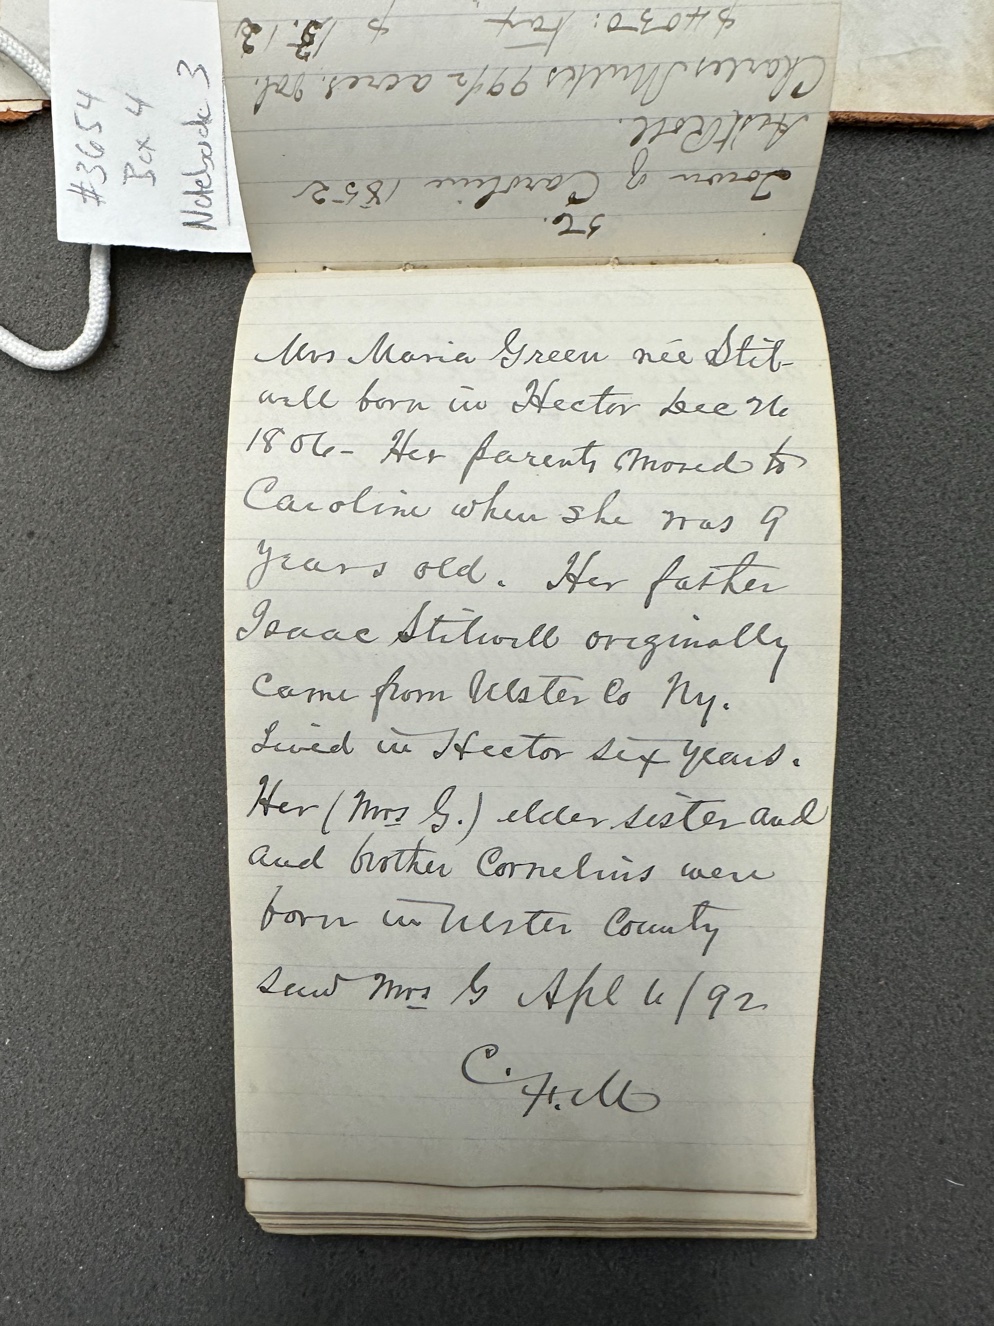 #3654
Box 4
Notebook 3
56.
Town of Caroline 1852
Asst Roll.
Charles Mulks 99 1/2 acres.
$4030: Tax $ 13.12
Mrs Maria Green née Stil-
well born in Hector Dec 26
1806- Her parents moved to
Caroline when she was 9
years old. Her father
Isaac Stilwell originally
came from Ulster Co Ny.
Lived in Hector six years.
Her (Mrs G.) elder sister and
and brother Cornelius were
born in Ulster County
saw Mrs G Apl 6/92
C.
F.M